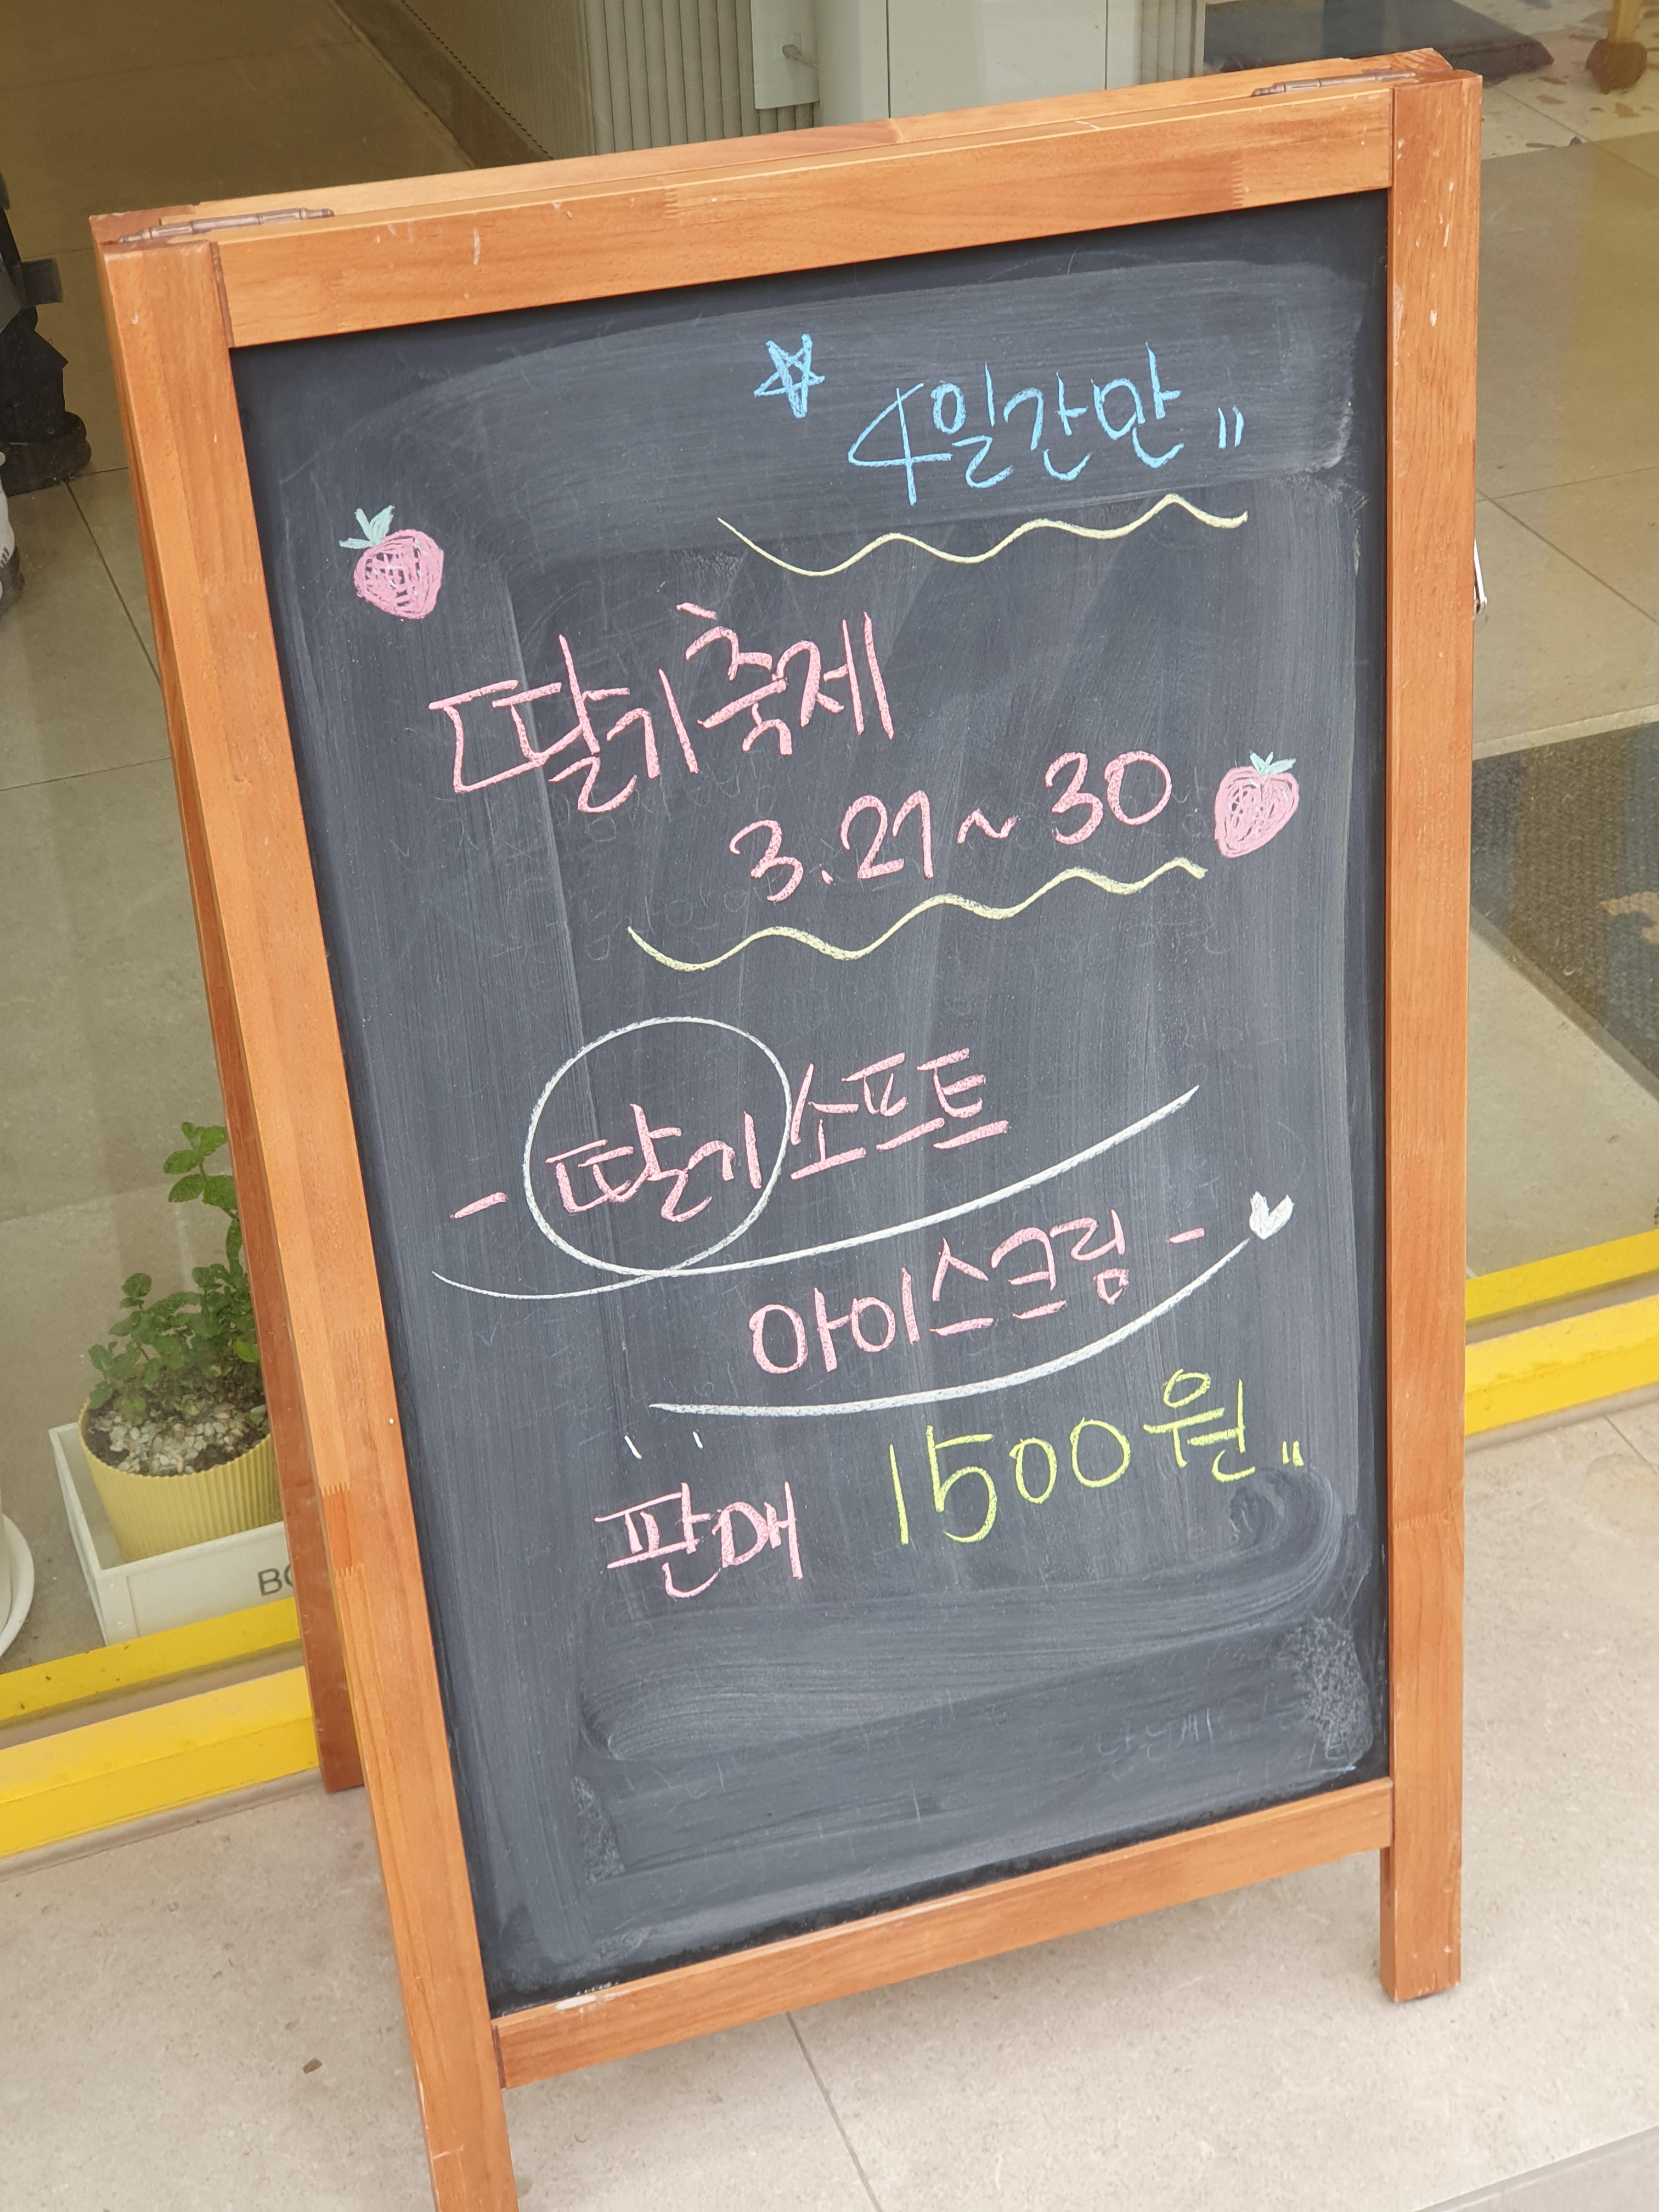 4일간만"
딸기축제
3.27~30
- 딸기소프트
아이스크림 -
판매 1500원"